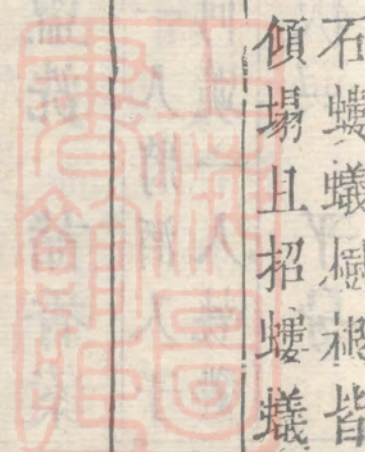 石螻蟻樹根皆
傾塌且招螻蟻
上海圖
書館藏